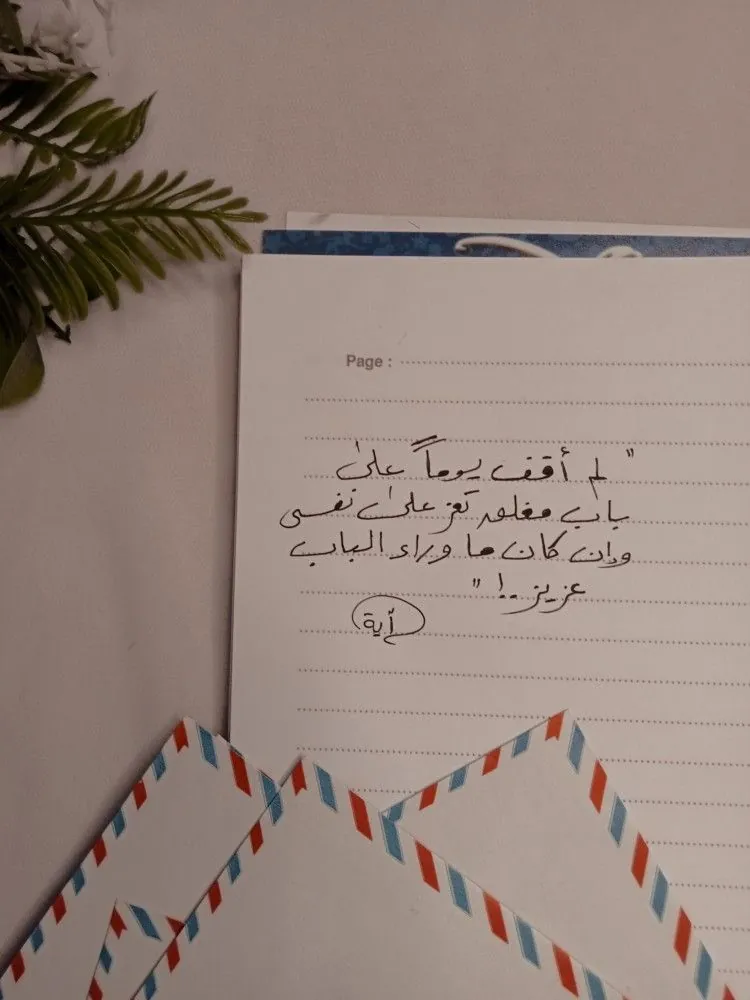 Page :
" لم أقف يوماً على
باب مغلق تعز على نفسي
وإن كان ما وراء الباب
عزيز..! "
آية